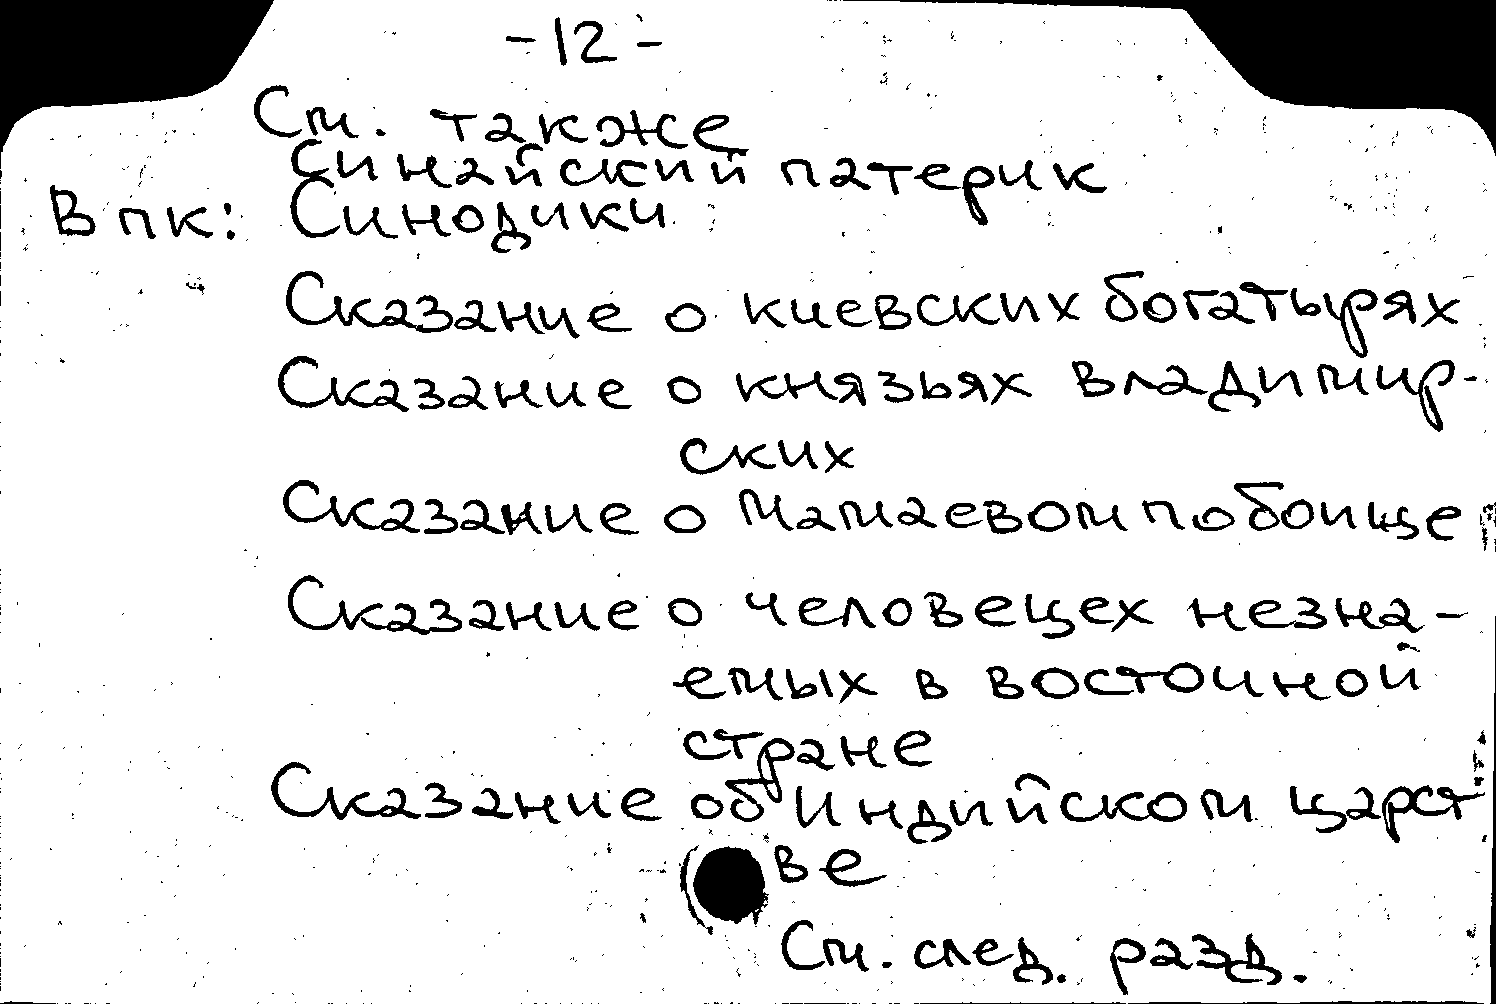 -12-
См. также
Синайский патерик
В пк: Синодики
Сказание о киевских богатырях
Сказание о князьях владимир-
ских
Сказание о Мамаевом побоище
Сказание о человецех незна-
емых в восточной
стране
Сказание об Индийском царст
ве
См. след. разд.